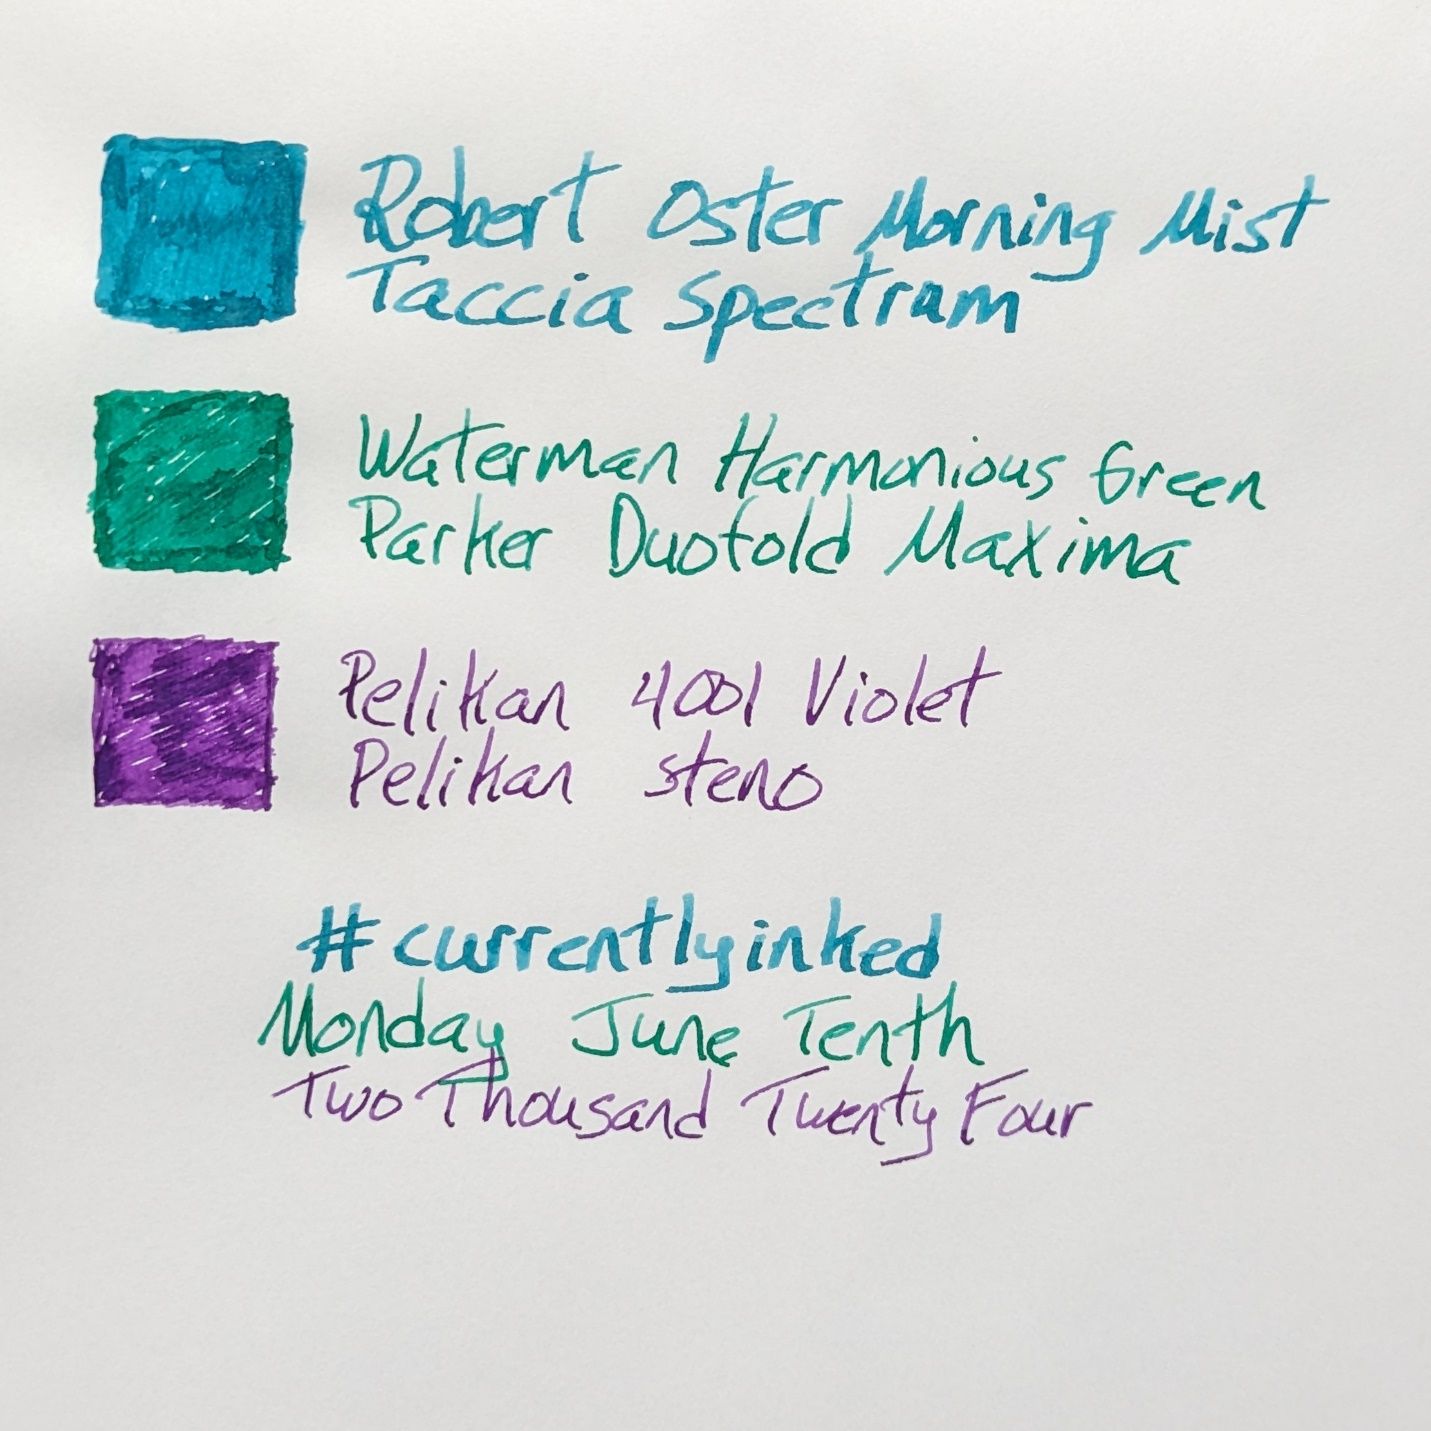 Robert Oster Morning Mist
Taccia Spectrum
Waterman Harmonious Green
Parker Duofold Maxima
Pelikan 4001 Violet
Pelikan steno
#currentlyinked
Monday June Tenth
Two Thousand Twenty Four